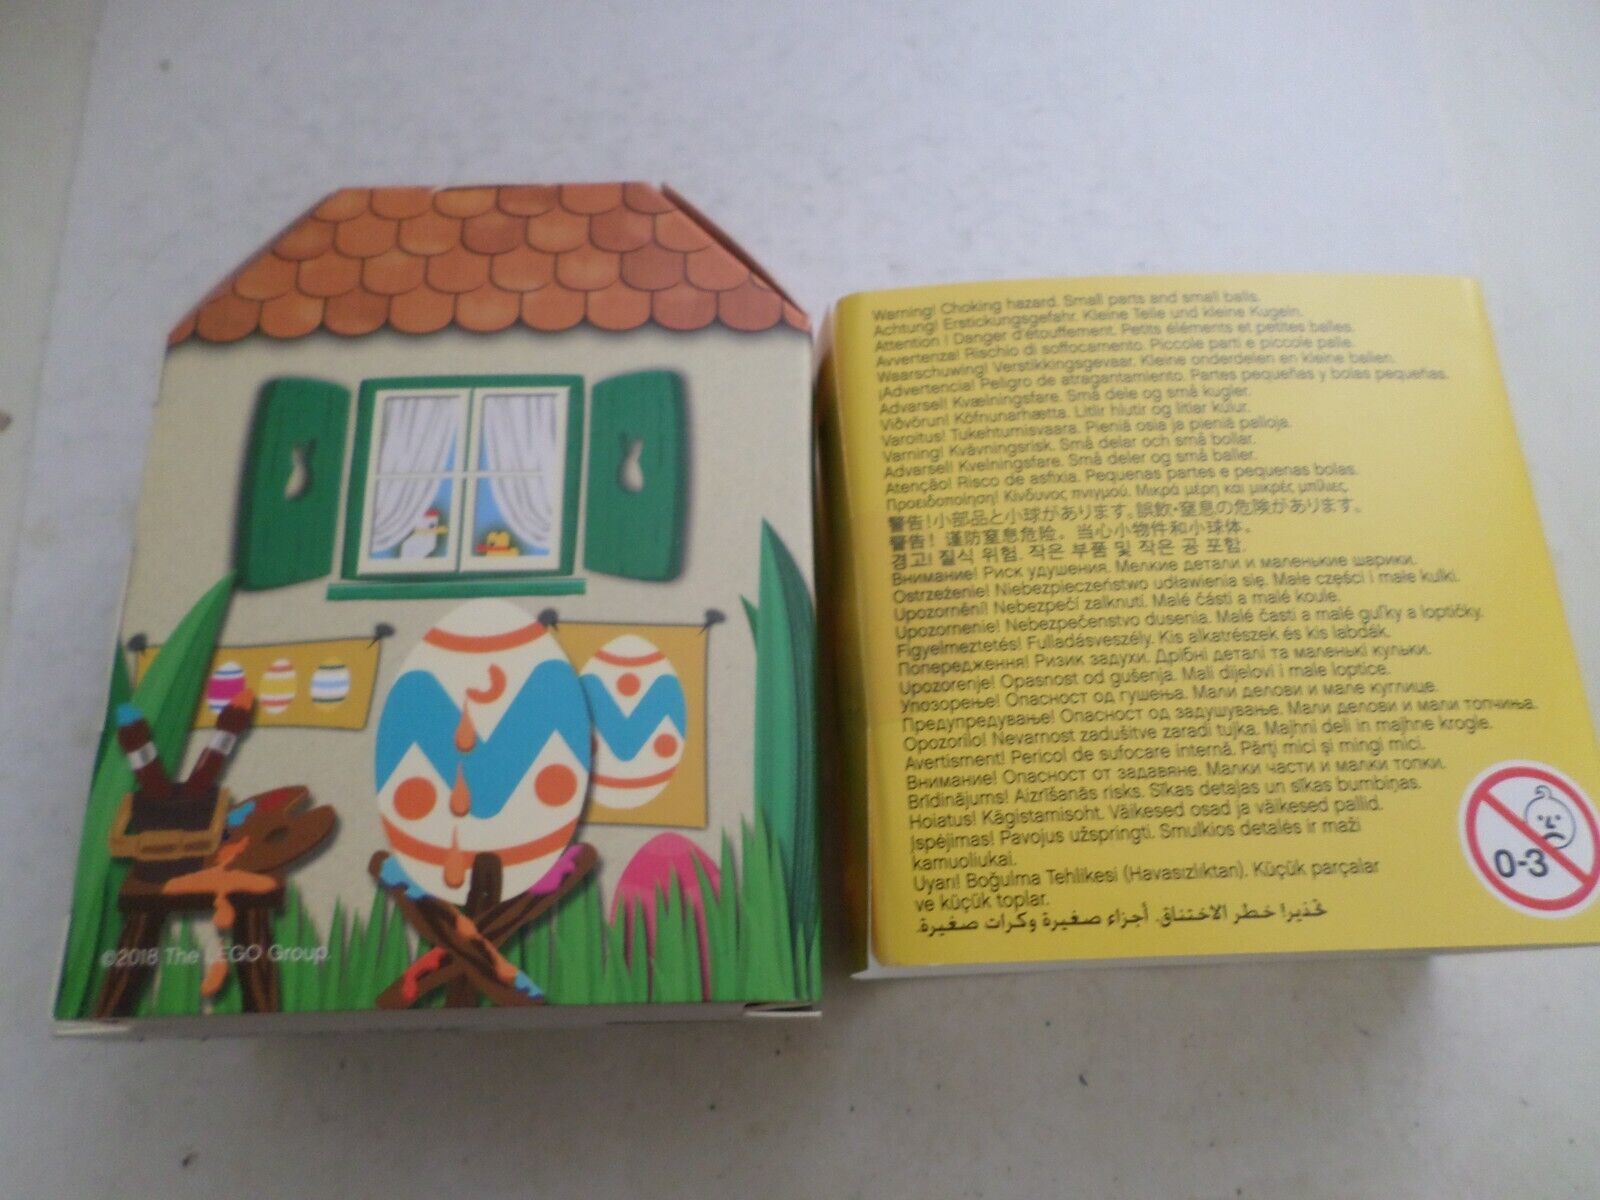 ©2018 The LEGO Group.
Warning! Choking hazard. Small parts and small balls.
Achtung! Erstickungsgefahr. Kleine Teile und kleine Kugeln.
Attention ! Danger d'étouffement. Petits éléments et petites balles.
Avvertenza! Rischio di soffocamento. Piccole parti e piccole palle.
Waarschuwing! Verstikkingsgevaar. Kleine onderdelen en kleine ballen.
¡Advertencia! Peligro de atragantamiento. Partes pequeñas y bolas pequeñas.
Advarsel! Kvælningsfare. Små dele og små kugler.
Viðvörun! Köfnunarhætta. Litlir hlutir og litlar kúlur.
Varoitus! Tukehtumisvaara. Pieniä osia ja pieniä palloja.
Varning! Kvävningsrisk. Små delar och små bollar.
Advarsel! Kvelningsfare. Små deler og små baller.
Atenção! Risco de asfixia. Pequenas partes e pequenas bolas.
Προειδοποίηση! Κίνδυνος πνιγμού. Μικρά μέρη και μικρές μπίλιες.
警告!小部品と小球があります。誤飲・窒息の危険があります。
警告！谨防窒息危险。当心小物件和小球体。
경고! 질식 위험. 작은 부품 및 작은 공 포함.
Внимание! Риск удушения. Мелкие детали и маленькие шарики.
Ostrzeżenie! Niebezpieczeństwo udławienia się. Małe części i małe kulki.
Upozornění! Nebezpečí zalknutí. Malé části a malé koule.
Upozornenie! Nebezpečenstvo dusenia. Malé časti a malé guľky a loptičky.
Figyelmeztetés! Fulladásveszély. Kis alkatrészek és kis labdák.
Попередження! Ризик задухи. Дрібні деталі та маленькі кульки.
Upozorenje! Opasnost od gušenja. Mali dijelovi i male loptice.
Упозорење! Опасност од гушења. Мали делови и мале куглице.
Предупредување! Опасност од задушување. Мали делови и мали топчиња.
Opozorilo! Nevarnost zadušitve zaradi tujka. Majhni deli in majhne krogle.
Avertisment! Pericol de sufocare internă. Părți mici și mingi mici.
Внимание! Опасност от задавяне. Малки части и малки топки.
Brīdinājums! Aizrīšanās risks. Sīkas detaļas un sīkas bumbiņas.
Hoiatus! Kägistamisoht. Väikesed osad ja väikesed pallid.
Įspėjimas! Pavojus užspringti. Smulkios detalės ir maži
kamuoliukai.
Uyarı! Boğulma Tehlikesi (Havasızlıktan). Küçük parçalar
ve küçük toplar.
تحذير! خطر الاختناق. أجزاء صغيرة وكرات صغيرة.
0-3